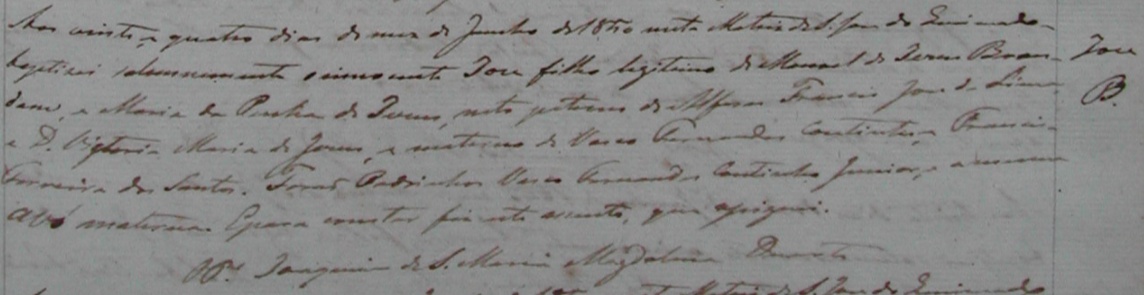 Aos vinte, e quatro dias do mez de Junho de 1850 nesta Matriz de S. Jose do Queimado
baptizei solemnemente o innocente Jose filho legitimo de Manoel de Jesus
e Maria da Penha de Jesus, neto paterno do Alferes Francisco Jose de Lima
e D. Victoria Maria de Jesus, e materno de Vasco Fernandes Coutinho, e Francisca
Ferreira dos Santos. Foraõ Padrinhos Vasco Fernandes Coutinho Junior, e a mesma
avó materna. E para constar fiz este assento, que assignei.
Joaquim de S. Maria Magdalena Duarte
Jose
B.
Matriz de S. Jose do Queimado